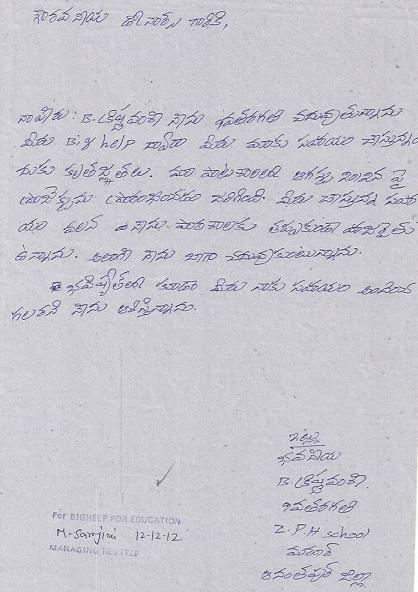 గౌరవనీయ శ్రీ చాంద్ గారికి,
నా పేరు: B. క్రిష్ణవంశి నేను 9వతరగతి చదువుతున్నాను
మీరు Big help ద్వారా మీరు మాకు సహయం చేస్తున్నం
దుకు కృతజ్ఞతలు. మా పాఠశాలలో ఆగష్టు 2012న పై
ప్రాజెక్టును ప్రారంభించడం జరిగింది. మీరు చేస్తున్న సహ
యం వలన నేను పాఠశాలకు తప్పకుండా హాజరౌతు
ఉన్నాను. అలాగే నేను బాగా చదువుకుంటున్నాను.
భవిష్యత్‌లో కూడా మీరు నాకు సహయం అందించ
గలరని నేను ఆశిస్తున్నాను.
ఇట్లు
భవదీయ
B. క్రిష్ణవంశి.
9వతరగతి
Z.P.H school
ఆనంతపుర్ జిల్లా
For BIGHELP FOR EDUCATION
12-12-12
MANAGING TRUSTEE